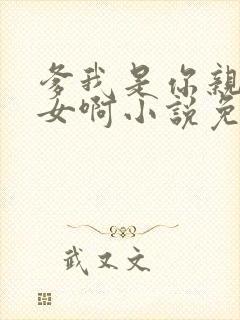 爹我是你親
女啊小說免
武又文